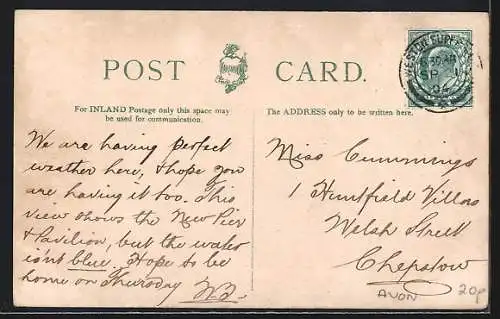 POST CARD.
For INLAND Postage only this space may
be used for communication.
The ADDRESS only to be written here.
We are having perfect
weather here, & hope you
are having it too. This
view shows the New Pier
& Pavilion, but the water
isn't blue. Hope to be
home on Thursday
Miss Cummings
1 Huntfield Villas
Welsh Street
Chepstow
AVON
20p
SP 1
04